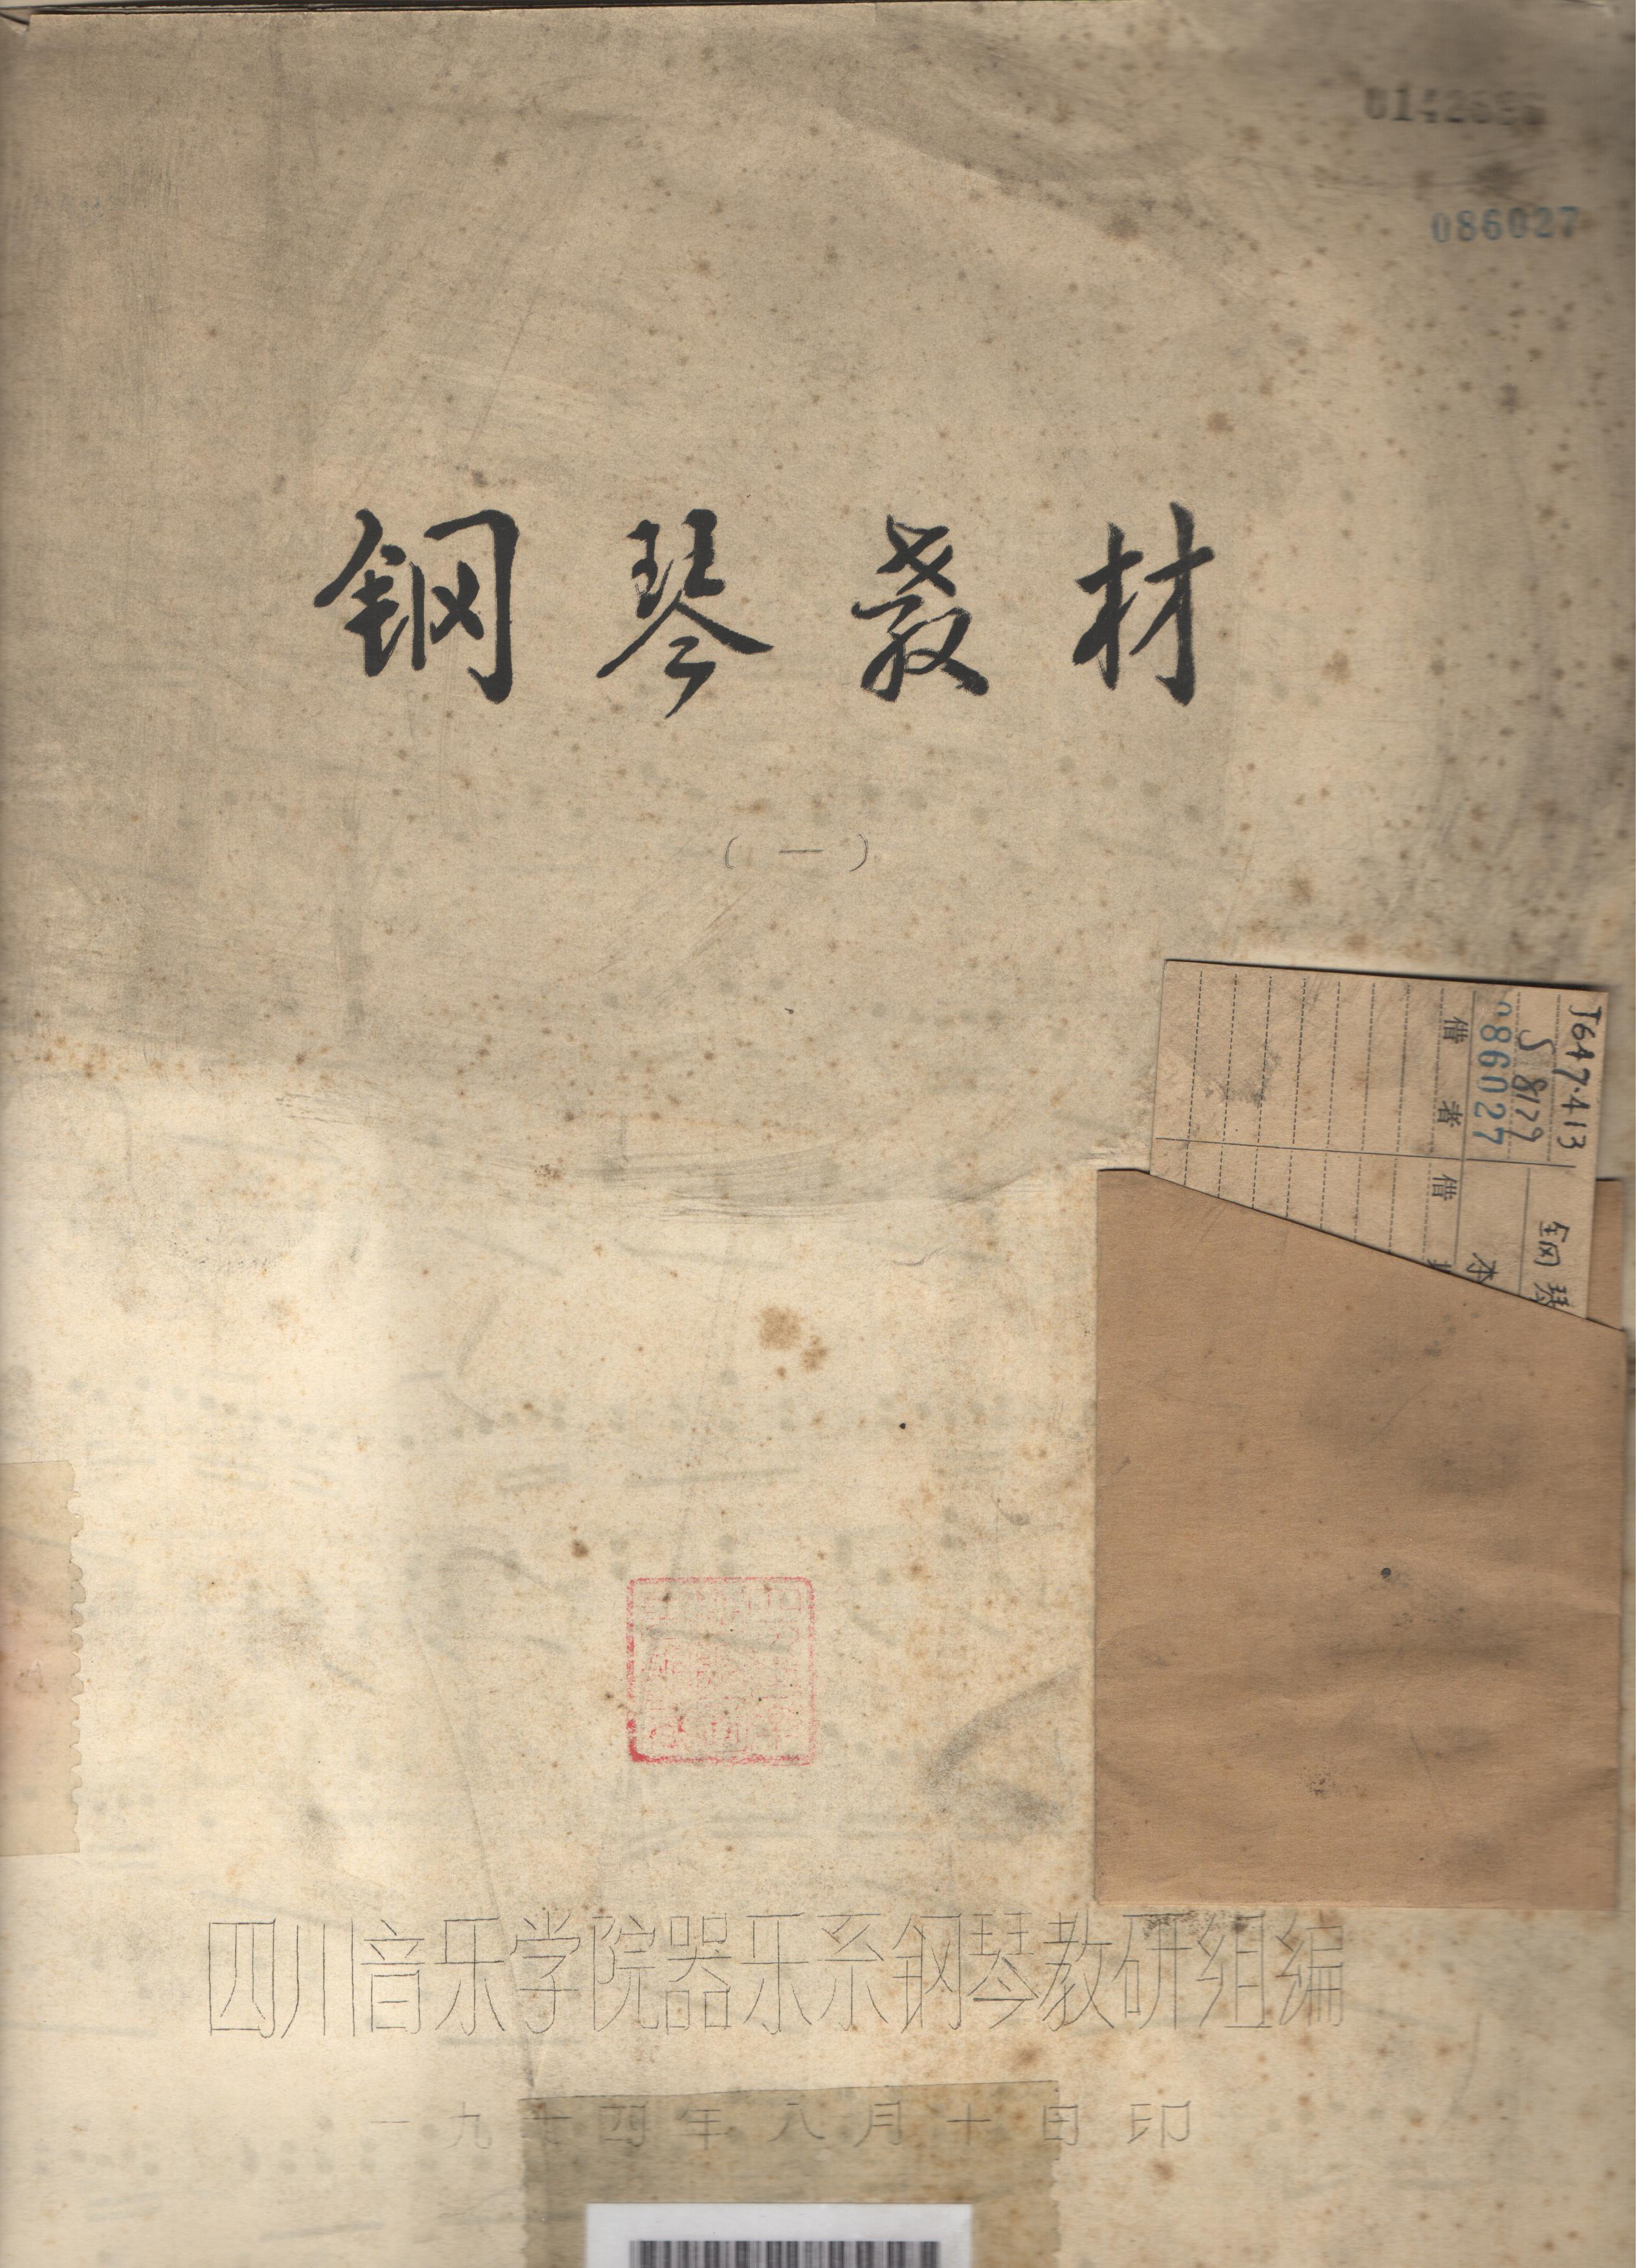 086027
钢琴教材
（一）
J647·413
S8179
086027
借者
借
钢琴
本
四川音乐学院器乐系钢琴教研组编
一九七四年八月十日印